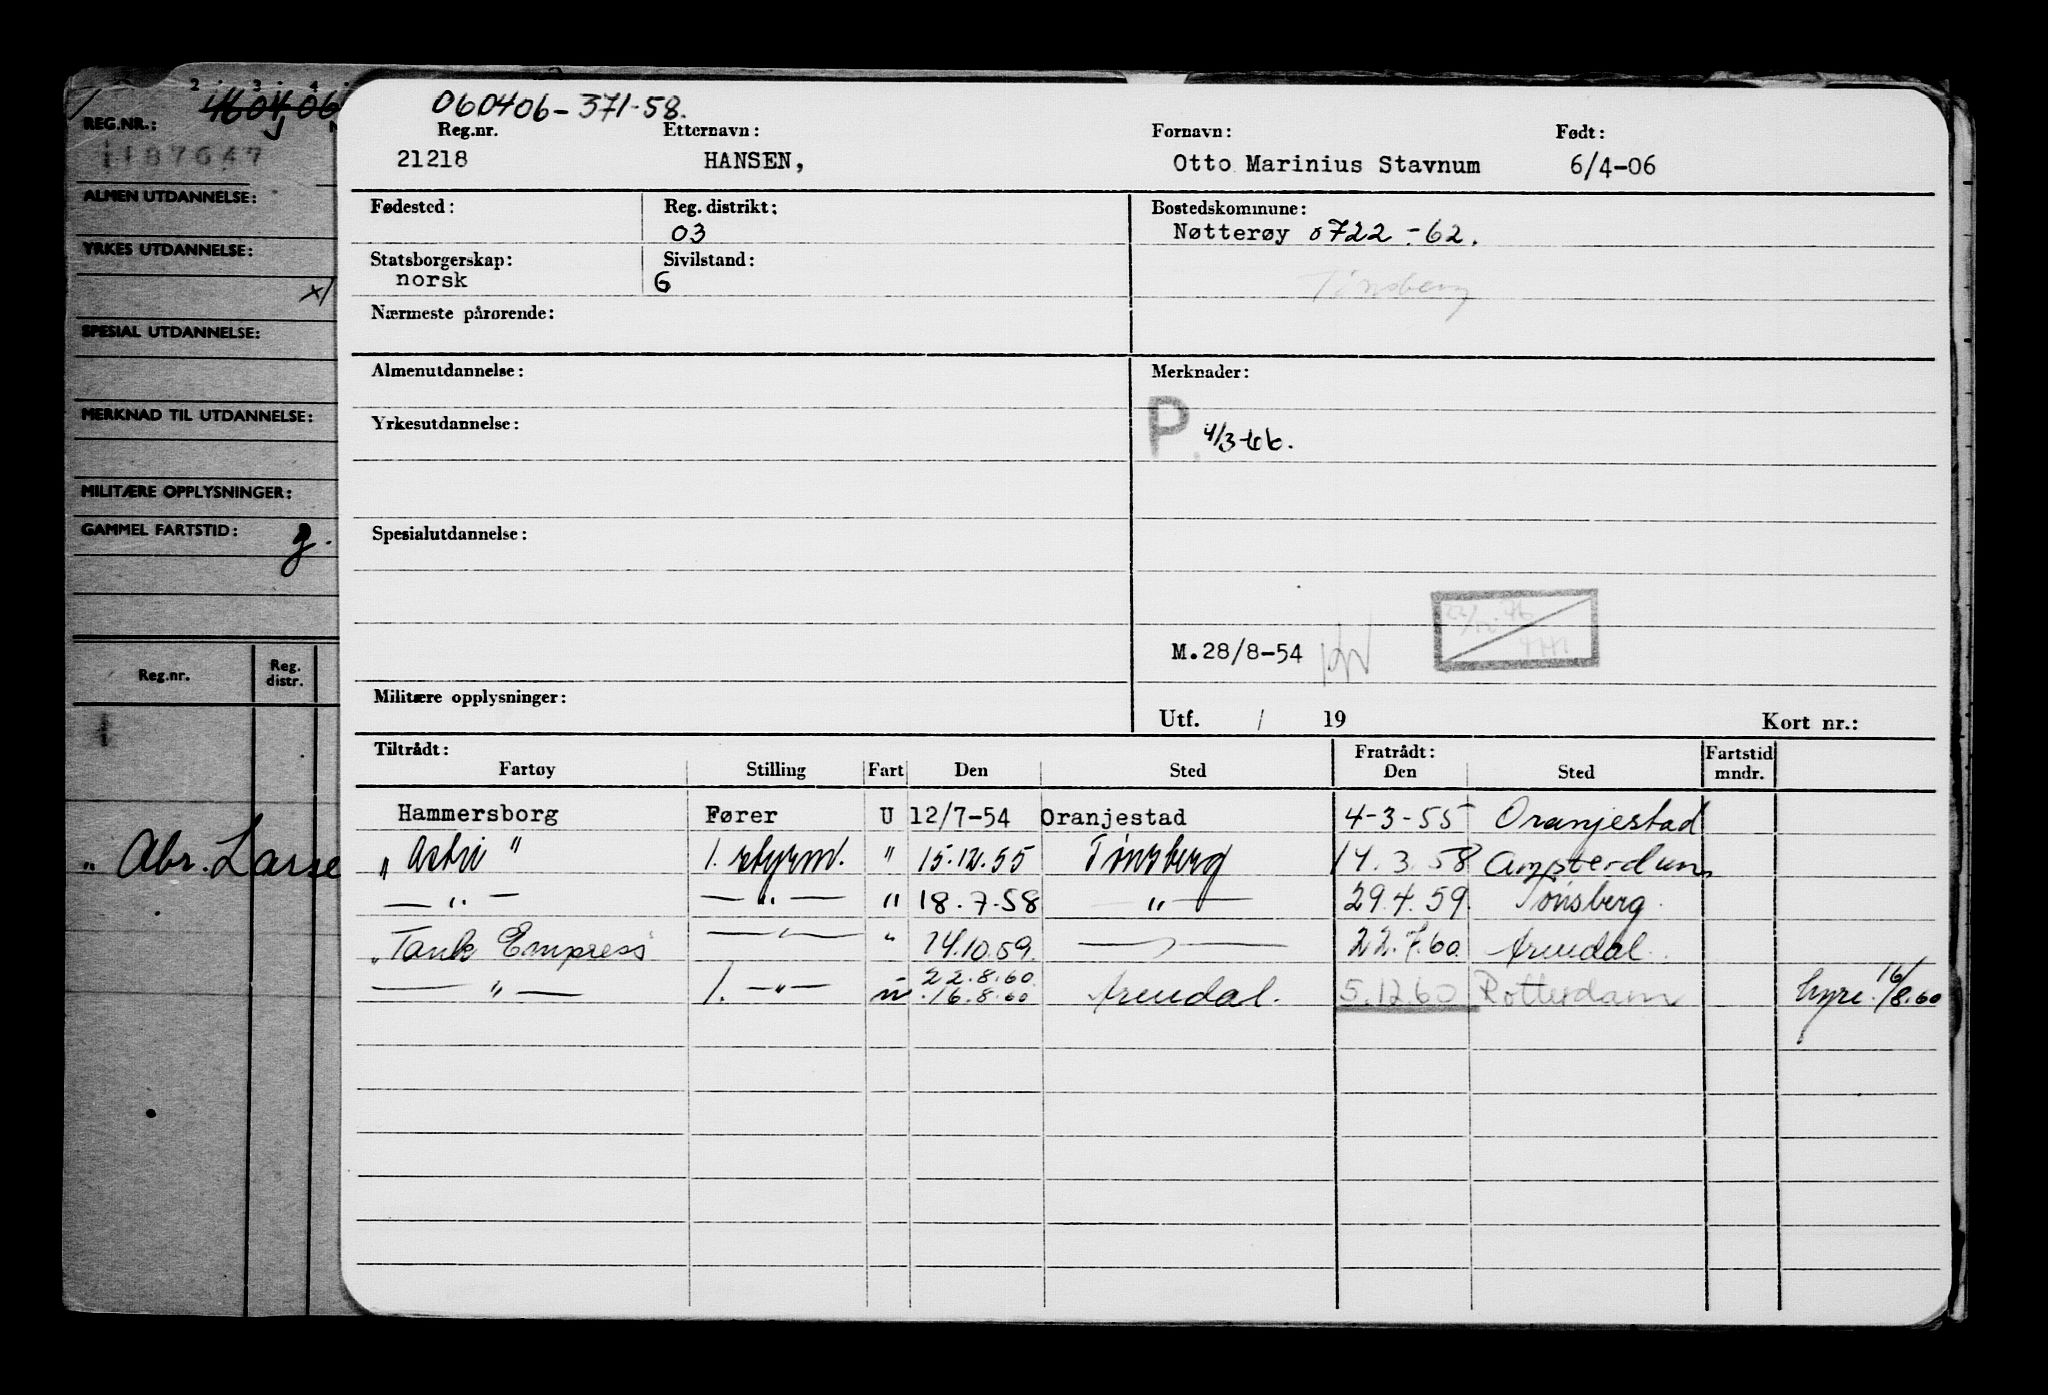 2 3 4
160406
REG.NR.:
1187647
ALMEN UTDANNELSE:
YRKES UTDANNELSE:
x/
SPESIAL UTDANNELSE:
MERKNAD TIL UTDANNELSE:
MILITÆRE OPPLYSNINGER:
GAMMEL FARTSTID: g.
Reg.nr. Reg. distr.
" Abr. Larse
060406-371-58.
Reg.nr. Etternavn: Fornavn: Født:
21218 HANSEN, Otto Marinius Stavnum 6/4-06
Fødested: Reg. distrikt: Bostedskommune:
03 Nøtterøy 0722-62.
Statsborgerskap: Sivilstand:
norsk 6 Tønsberg
Nærmeste pårørende:
Almenutdannelse: Merknader:
Yrkesutdannelse: P. 4/3-66.
Spesialutdannelse:
M.28/8-54
Militære opplysninger:
Utf. / 19 Kort nr.:
Tiltrådt: Fratrådt: Fartstid
Fartøy Stilling Fart Den Sted Den Sted mndr.
Hammersborg Fører U 12/7-54 Oranjestad 4-3-55 Oranjestad
" Astri " 1. styrm. " 15.12.55 Tønsberg 14.3.58 Amsterdam
— " — — " — " 18.7.58 — " — 29.4.59 Tønsberg
" Tank Empress — " — " 14.10.59. — " — 22.7.60 Arendal.
22.8.60
— " — 1. — " — " 16.8.60 Arendal. 5.12.60 Rotterdam hyre 16/8.60